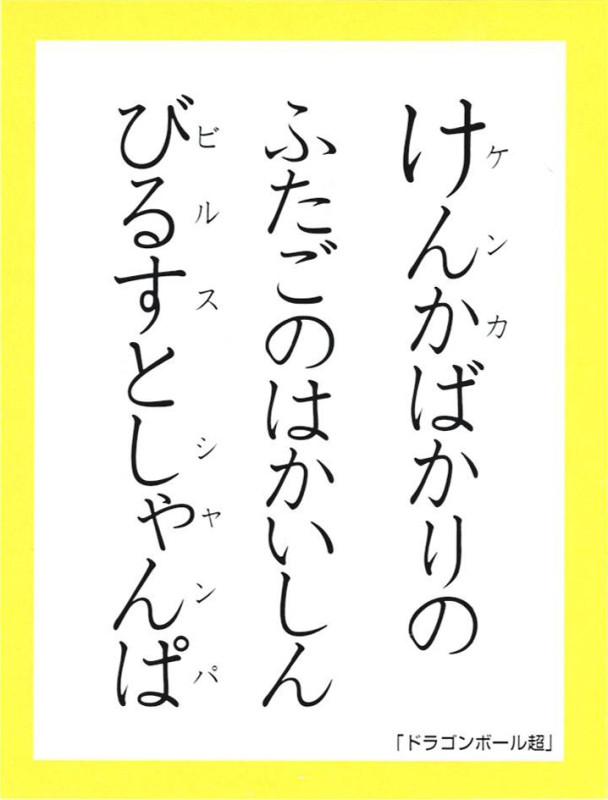 けんかばかりの
ケンカ
ふたごのはかいしん
びるすとしゃんぱ
ビルス
シャンパ
「ドラゴンボール超」